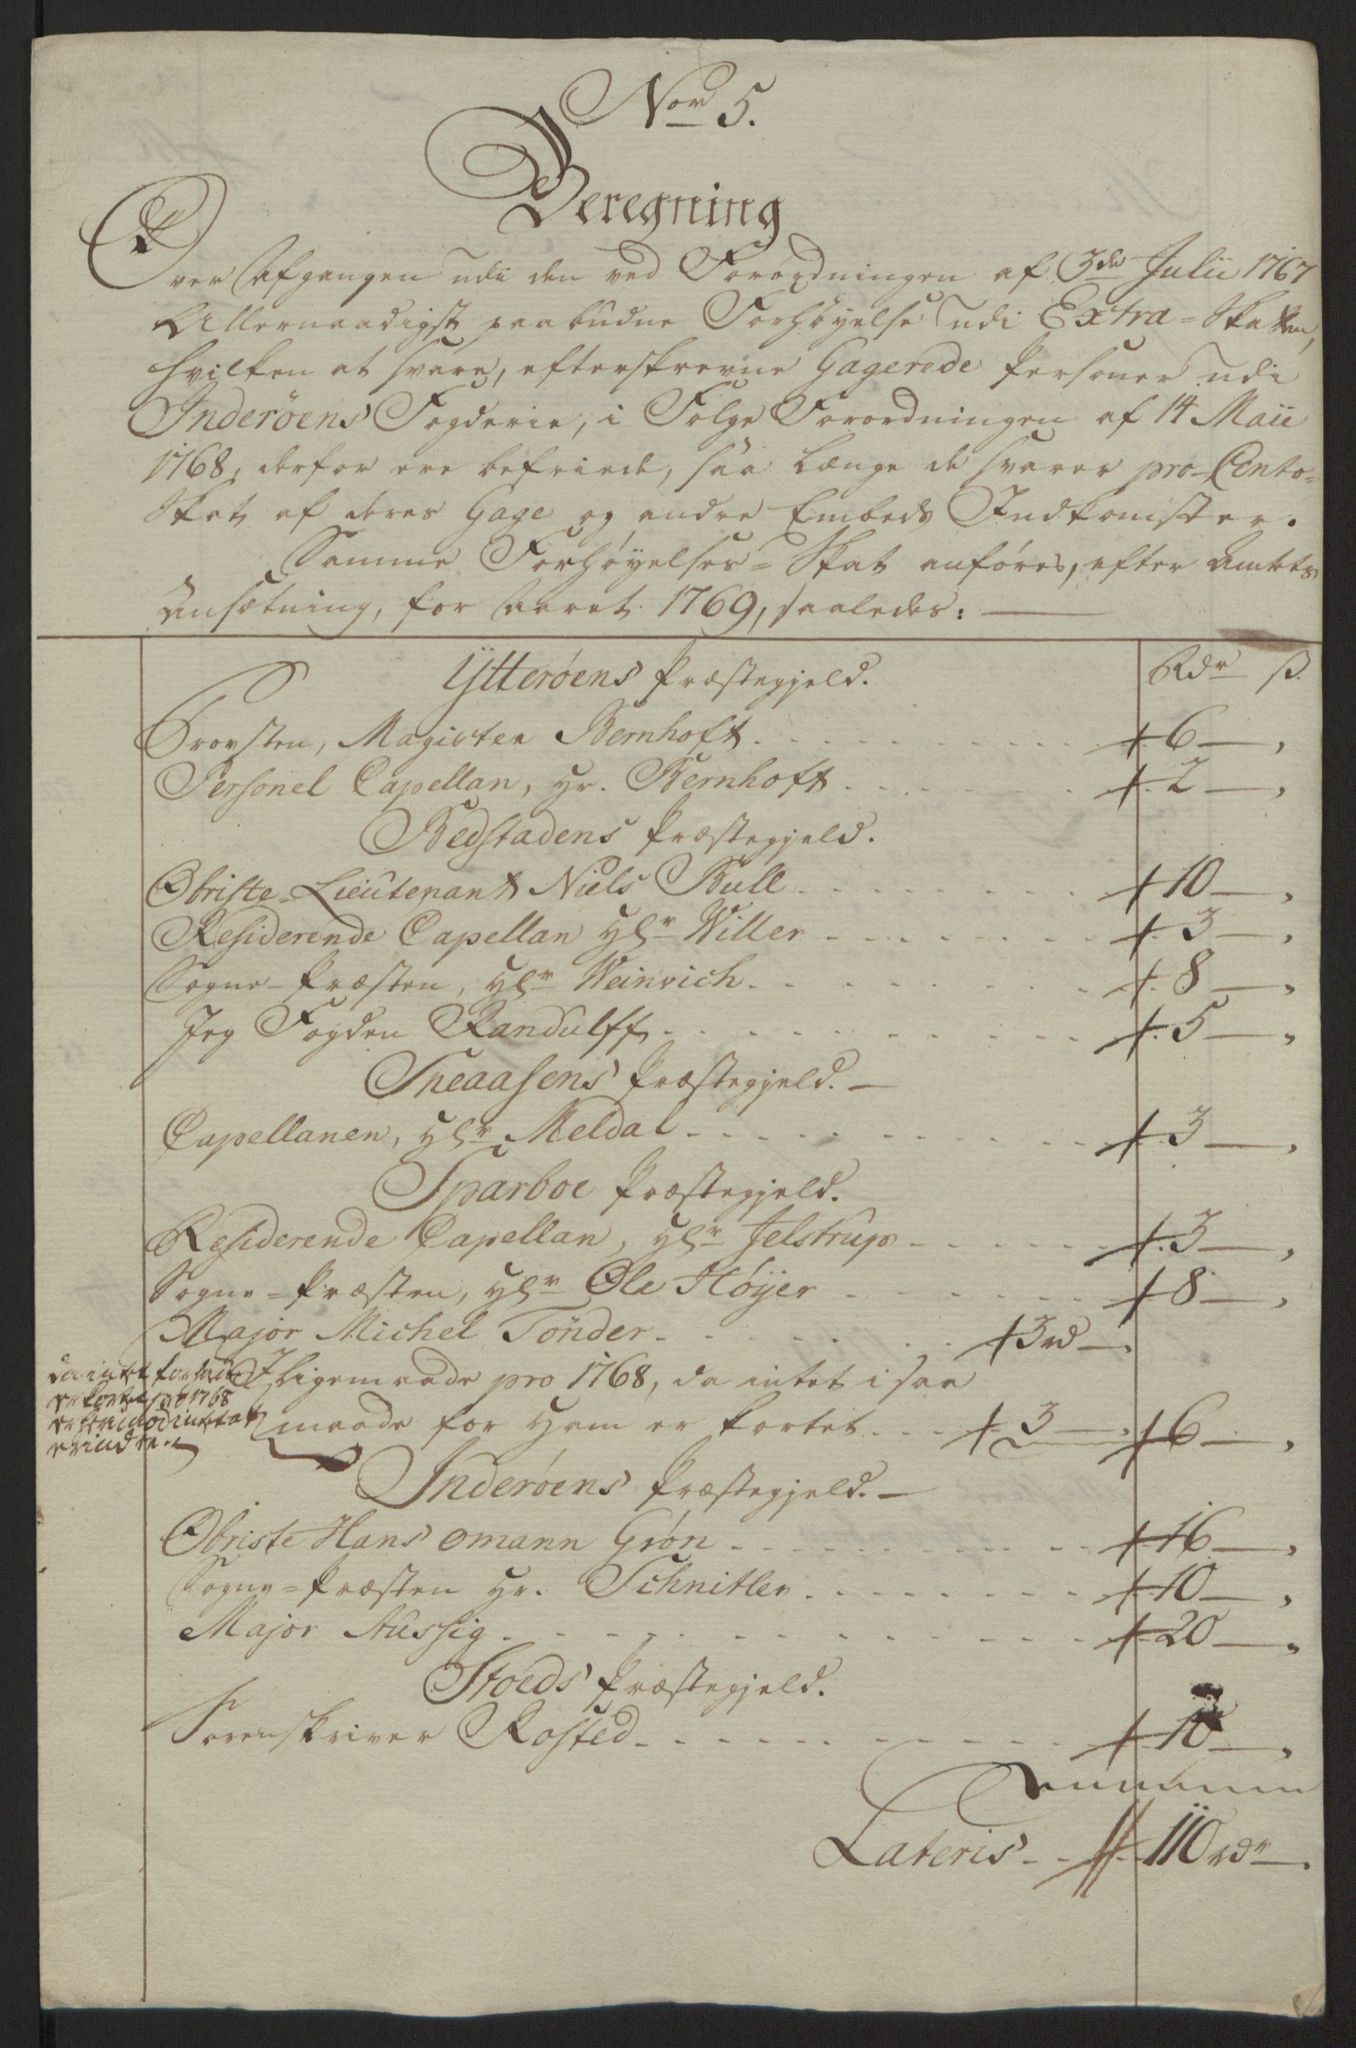 Nor 5.
Beregning
Over Afgangen udi den ved Forordningen af 3de Julii 1767
Allernaadigst paabudne Forhøyelse udi Extra-Skatten,
hvilken at svare, efterskrevne Gagerede Personer udi
Inderöens Fogderie, i Følge Forordningen af 14 Maii
1768, derfor ere befriede, saa Længe de svarer pro-Cento-
Skat af deres Gage og andre Embeds Indkomster.
Samme Forhøyelses-Skat anføres, efter Amtets
Ansætning, for Aaret 1769, saaledes:
Ytterøens Præstegield. Rdr ß.
Provsten, Magister Bernhoft 6 — ,
Personel Capellan, Hr. Bernhoft 2 — ,
Bedstadens Præstegield.
Obriste-Lieutenant Niels Bull 10 — ,
Residerende Capellan Hr Willer 3 — ,
Sogne-Præsten, Hr Weinvich 8 — ,
Jeg Fogden Randulff 5 — ,
Sneaasens Præstegield.
Capellanen, Hr Meldal 3 — ,
Sparboe Præstegield.
Residerende Capellan, Hr Jelstrup 3 — ,
Sogne-Præsten, Hr Ole Høyer 8 — ,
Major Michel Tønder 3rd — ,
Ligemaade pro 1768, da intet i saa
maade for Ham er kortet 3 — , 6 — ,
da intet for
1768
Inderøens Præstegield.
Obriste Hans Omann Grøn 16 — ,
Sogne-Præsten Hr. Schnitler 10 — ,
Major Aussig 20 — ,
Stoeds Præstegield.
Sorenskriver Rosted 10 — ,
Lateris 110 rdr — .